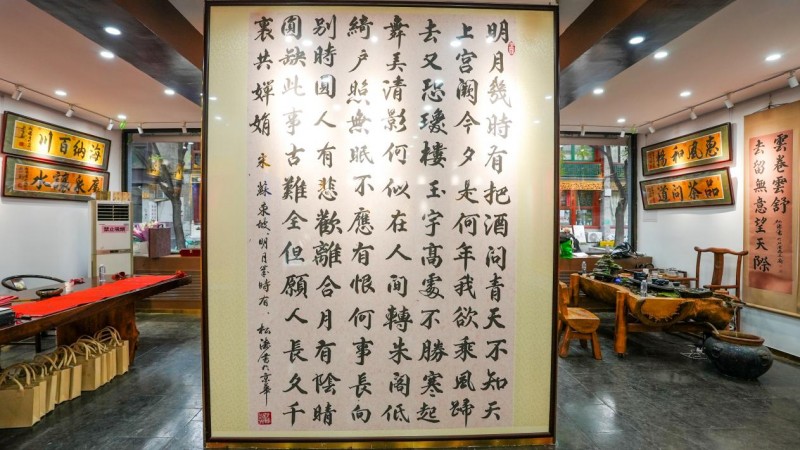 明月幾時有把酒問青天不知天
上宮闕今夕是何年我欲乘風歸
去又恐瓊樓玉宇高處不勝寒起
舞弄清影何似在人間轉朱閣低
綺戶照無眠不應有恨何事長向
別時圓人有悲歡離合月有陰晴
圓缺此事古難全但願人長久千
裏共嬋娟 宋 蘇東坡 明月幾時有 松濤書於京華
海納百川
廉泉讓水
惠風和暢
品茶問道
雲卷雲舒
去留無意望天際